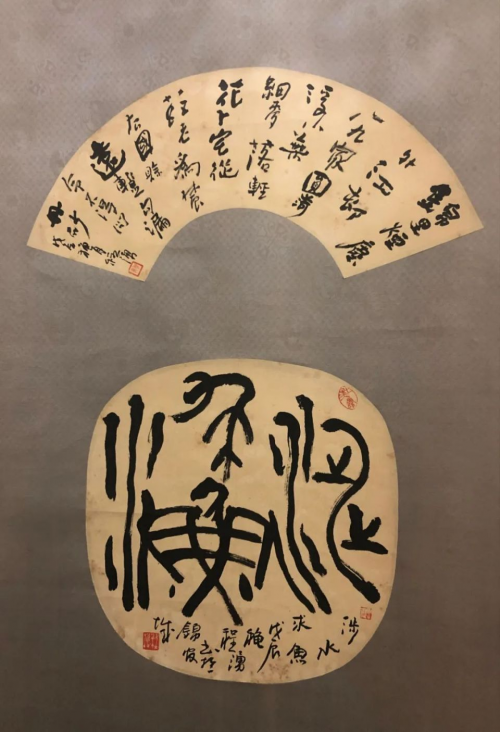 錦里煙
塵外江邨
八九家
圓荷浮小葉
細麥落輕
花卜宅從
茲老為農
去國賒
遠慙勾漏
令不得問
丹砂
涉水求魚
涉水
求魚
戊辰
程湧
錦官
城